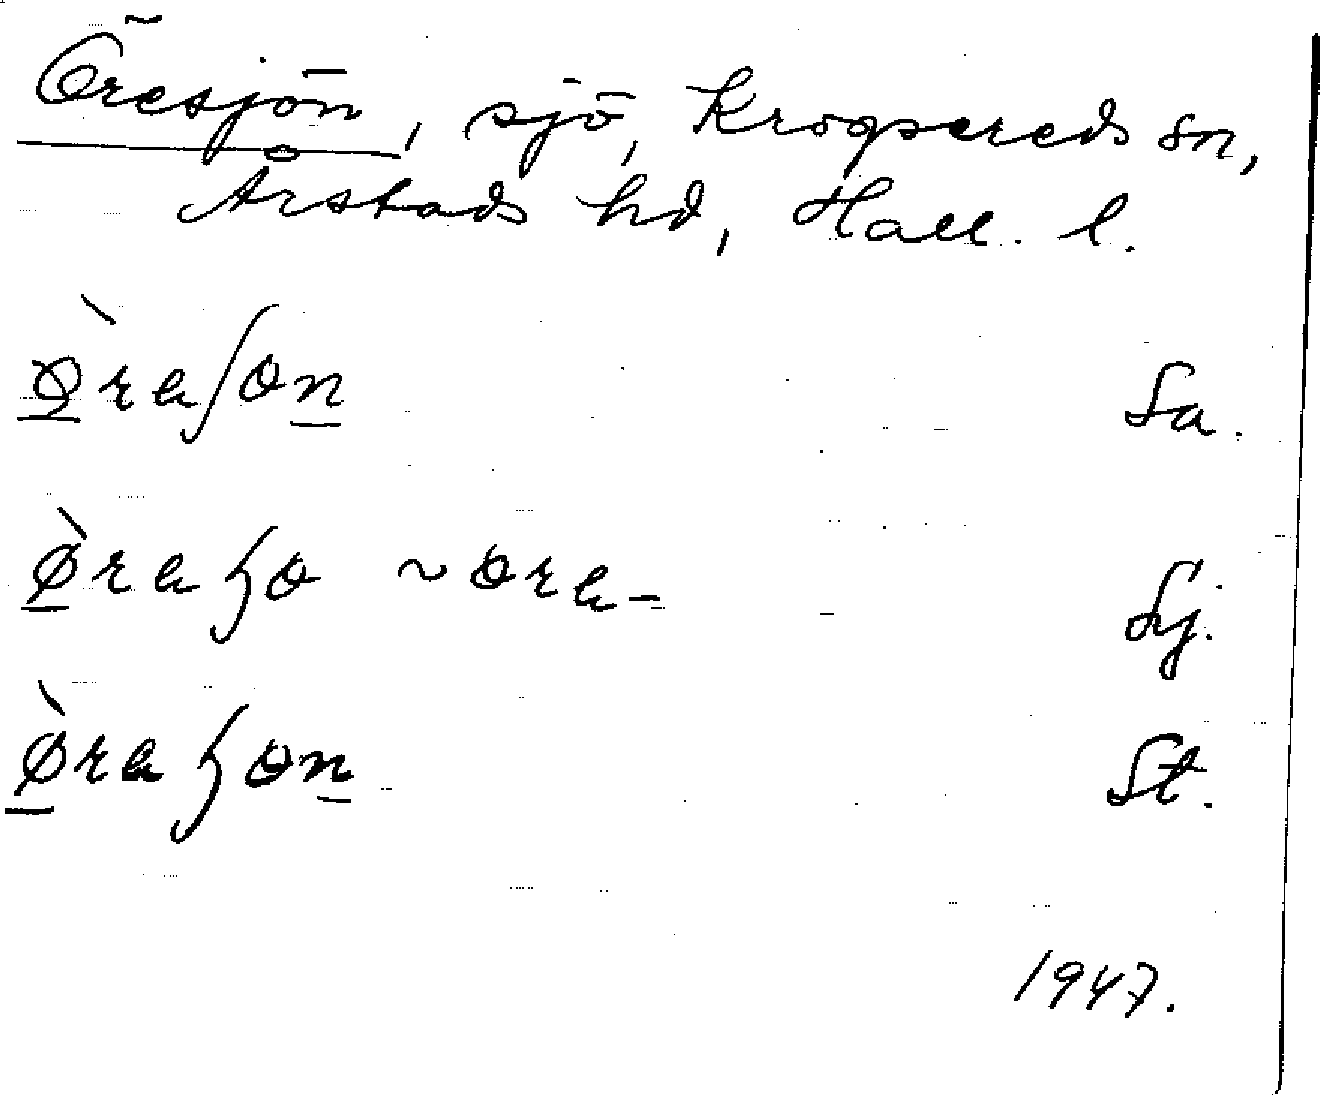 Öresjön, sjö, Krogsereds sn,
Årstads hd, Hall. l.
ø̀raʃon Sa.
ø̀raɧo ~ ora- Sj.
ø̀raɧon St.
1947.